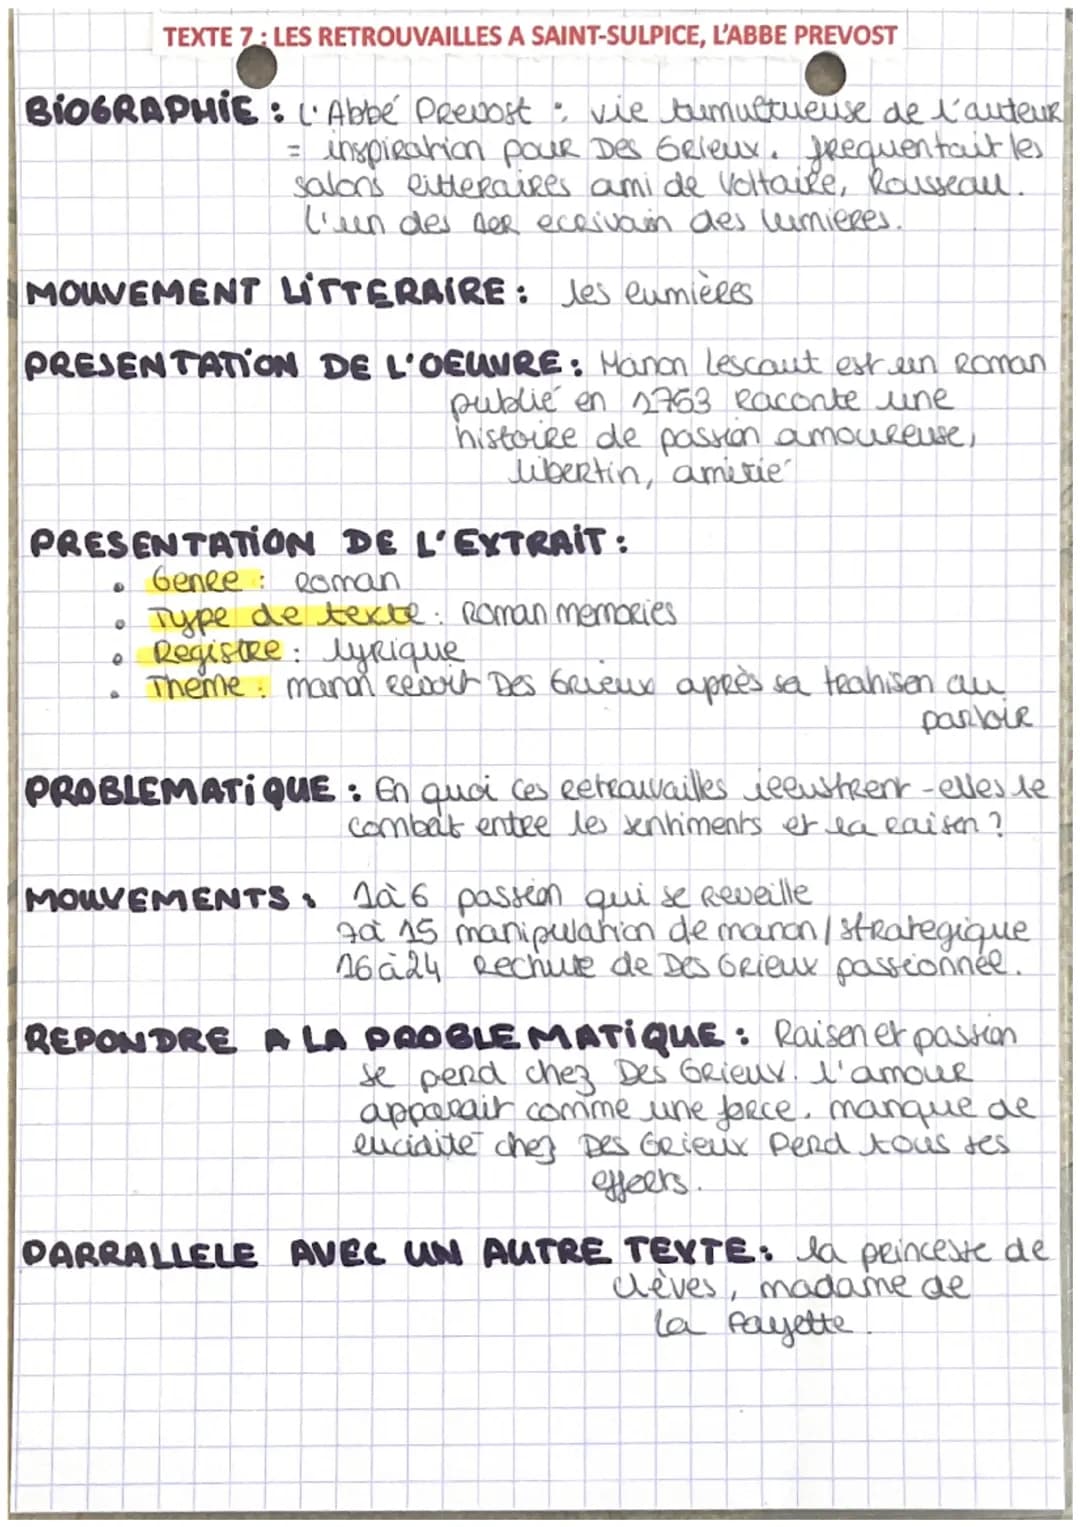 TEXTE 7 : LES RETROUVAILLES A SAINT-SULPICE, L'ABBE PREVOST
BiOGRAPHiE : L'Abbé Prevost : vie tumultueuse de l'auteur
= inspiration pour Des Grieux. frequentait les
salons litteraires ami de Voltaire, Rousseau.
l'un des 1er ecrivain des lumieres.
MOUVEMENT LiTTERAiRE : les lumières
PRESENTATiON DE L'OEUVRE : Manon Lescaut est un roman
publié en 1763 raconte une
histoire de passion amoureuse,
libertin, amitié
PRESENTATiON DE L'EXTRAiT :
• Genre : roman
• Type de texte : roman memories
• Registre : lyrique
• Theme : manon revoit Des Grieux après sa trahison au
parloir
PROBLEMATiQUE : En quoi ces retrouvailles illustrent-elles le
combat entre les sentiments et la raison ?
MOUVEMENTS : 1à 6 passion qui se reveille
7à 15 manipulation de manon / strategique
16 à 24 Rechute de Des Grieux passionnée.
REPONDRE A LA PROBLEMATiQUE : Raison et passion
se perd chez Des Grieux. l'amour
apparait comme une force. manque de
lucidité chez Des Grieux Perd tous ses
effets.
PARRALLELE AVEC UN AUTRE TEXTE : la princesse de
Clèves, madame de
la fayette.